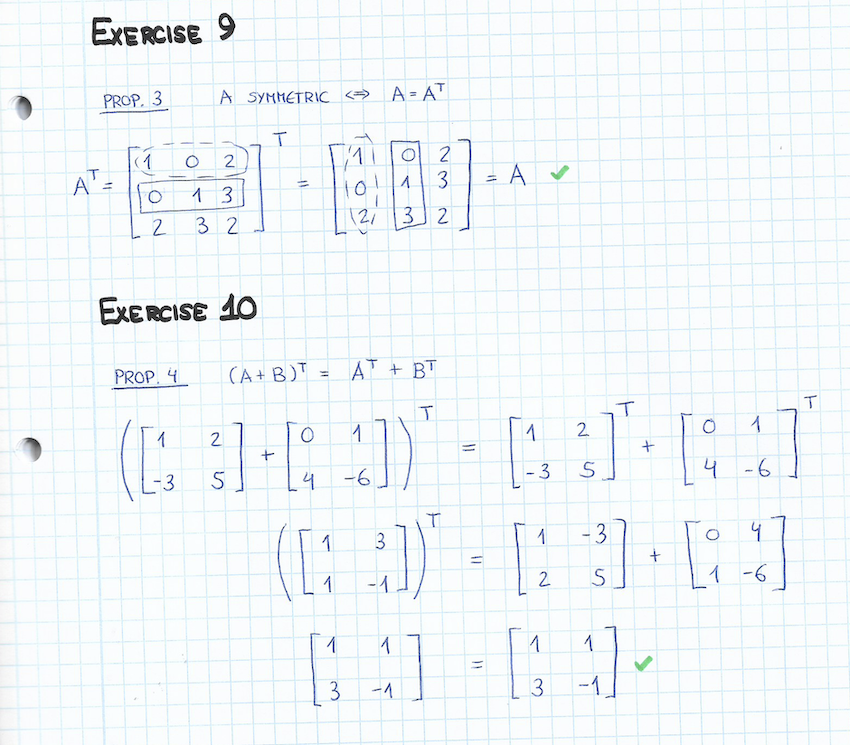 EXERCISE 9
PROP. 3 A SYMMETRIC <=> A = A^T
A^T = [1 0 2; 0 1 3; 2 3 2]^T = [1 0 2; 0 1 3; 2 3 2] = A ✓
EXERCISE 10
PROP. 4 (A + B)^T = A^T + B^T
([1 2; -3 5] + [0 1; 4 -6])^T = [1 2; -3 5]^T + [0 1; 4 -6]^T
([1 3; 1 -1])^T = [1 -3; 2 5] + [0 4; 1 -6]
[1 1; 3 -1] = [1 1; 3 -1] ✓